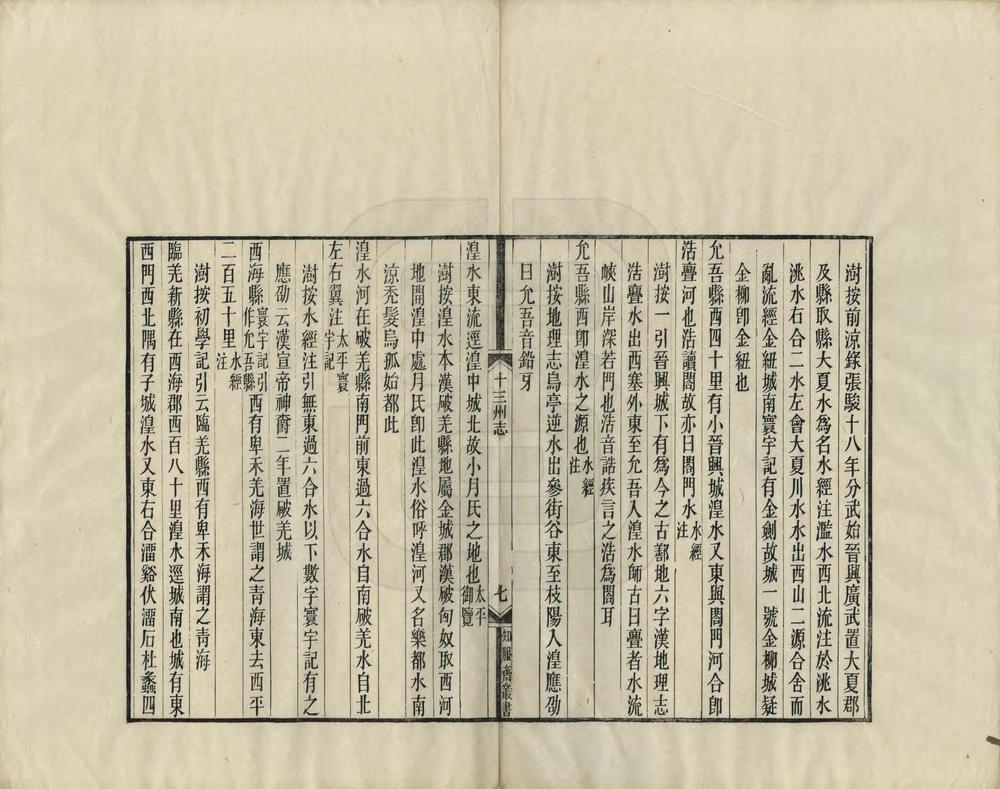 澍按前涼錄張駿十八年分武始晉興廣武置大夏郡
及縣取縣大夏水爲名水經注濫水西北流注於洮水
洮水右合二水左會大夏川水水出西山二源合舍而
亂流經金紐城南寰宇記有金劍故城一號金柳城疑
金柳卽金紐也
允吾縣西四十里有小晉興城湟水又東與閤門河合卽
浩亹河也浩讀閤故亦曰閤門水水經注
澍按一引晉興城下有爲今之古鄯地六字漢地理志
浩亹水出西塞外東至允吾入湟水師古曰亹者水流
峽山岸深若門也浩音誥疾言之浩爲閤耳
允吾縣西卽湟水之源也水經注
澍按地理志烏亭逆水出參街谷東至枝陽入湟應劭
曰允吾音鉛牙
十三州志
七
知服齋叢書
湟水東流逕湟中城北故小月氏之地也太平御覽
澍按湟水本漢破羌縣地屬金城郡漢破匈奴取西河
地開湟中處月氏卽此湟水俗呼湟河又名樂都水南
涼禿髮烏孤始都此
湟水河在破羌縣南門前東過六合水自南破羌水自北
左右翼注太平寰宇記
澍按水經注引無東過六合水以下數字寰宇記有之
應劭云漢宣帝神爵二年置破羌城
西海縣寰宇記引作允吾縣西有卑禾羌海世謂之青海東去西平
二百五十里水經注
澍按初學記引云臨羌縣西有卑禾海謂之青海
臨羌新縣在西海郡西百八十里湟水逕城南也城有東
西門西北隅有子城湟水又東右合溜谿伏溜石杜蠡四